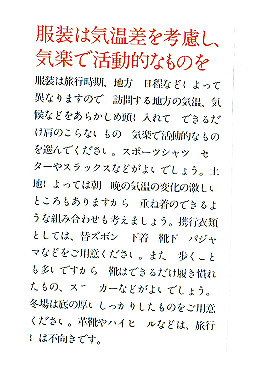 服装は気温差を考慮し、
気楽で活動的なものを
服装は旅行時期、地方 日程などによって
異なりますので 訪問する地方の気温、気
候などをあらかじめ頭に入れて できるだ
け肩のこらないもの 気楽で活動的なもの
を選んでください。スポーツシャツ セー
ターやスラックスなどがよいでしょう。土
地によっては朝 晩の気温の変化の激しい
ところもありますから 重ね着のできるよ
うな組み合わせも考えましょう。携行衣類
としては、替ズボン 下着 靴下 パジャ
マなどをご用意ください。また 歩くこと
も多いですから 靴はできるだけ履き慣れ
たもの、スニーカーなどがよいでしょう。
冬場は底の厚いしっかりしたものをご用意
ください。革靴やハイヒールなどは、旅行
には不向きです。